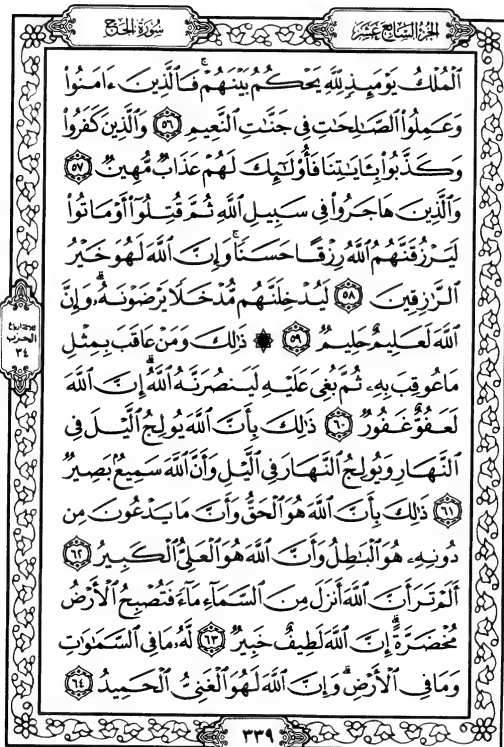 الجزء السابع عشر
سورة الحج
ٱلْمُلْكُ يَوْمَئِذٍ لِّلَّهِ يَحْكُمُ بَيْنَهُمْ ۚ فَٱلَّذِينَ ءَامَنُوا۟
وَعَمِلُوا۟ ٱلصَّٰلِحَٰتِ فِى جَنَّٰتِ ٱلنَّعِيمِ ٥٦ وَٱلَّذِينَ كَفَرُوا۟
وَكَذَّبُوا۟ بِـَٔايَٰتِنَا فَأُو۟لَٰٓئِكَ لَهُمْ عَذَابٌ مُّهِينٌ ٥٧
وَٱلَّذِينَ هَاجَرُوا۟ فِى سَبِيلِ ٱللَّهِ ثُمَّ قُتِلُوٓا۟ أَوْ مَاتُوا۟
لَيَرْزُقَنَّهُمُ ٱللَّهُ رِزْقًا حَسَنًا ۚ وَإِنَّ ٱللَّهَ لَهُوَ خَيْرُ
ٱلرَّٰزِقِينَ ٥٨ لَيُدْخِلَنَّهُم مُّدْخَلًا يَرْضَوْنَهُۥ ۗ وَإِنَّ
ٱللَّهَ لَعَلِيمٌ حَلِيمٌ ٥٩ ۞ ذَٰلِكَ وَمَنْ عَاقَبَ بِمِثْلِ
مَا عُوقِبَ بِهِۦ ثُمَّ بُغِىَ عَلَيْهِ لَيَنصُرَنَّهُ ٱللَّهُ ۗ إِنَّ ٱللَّهَ
لَعَفُوٌّ غَفُورٌ ٦٠ ذَٰلِكَ بِأَنَّ ٱللَّهَ يُولِجُ ٱلَّيْلَ فِى
ٱلنَّهَارِ وَيُولِجُ ٱلنَّهَارَ فِى ٱلَّيْلِ وَأَنَّ ٱللَّهَ سَمِيعٌۢ بَصِيرٌ
٦١ ذَٰلِكَ بِأَنَّ ٱللَّهَ هُوَ ٱلْحَقُّ وَأَنَّ مَا يَدْعُونَ مِن
دُونِهِۦ هُوَ ٱلْبَٰطِلُ وَأَنَّ ٱللَّهَ هُوَ ٱلْعَلِىُّ ٱلْكَبِيرُ ٦٢
أَلَمْ تَرَ أَنَّ ٱللَّهَ أَنزَلَ مِنَ ٱلسَّمَآءِ مَآءً فَتُصْبِحُ ٱلْأَرْضُ
مُخْضَرَّةً ۗ إِنَّ ٱللَّهَ لَطِيفٌ خَبِيرٌ ٦٣ لَّهُۥ مَا فِى ٱلسَّمَٰوَٰتِ
وَمَا فِى ٱلْأَرْضِ ۗ وَإِنَّ ٱللَّهَ لَهُوَ ٱلْغَنِىُّ ٱلْحَمِيدُ ٦٤
ثلاثة أرباع
الحزب
٣٤
٣٣٩